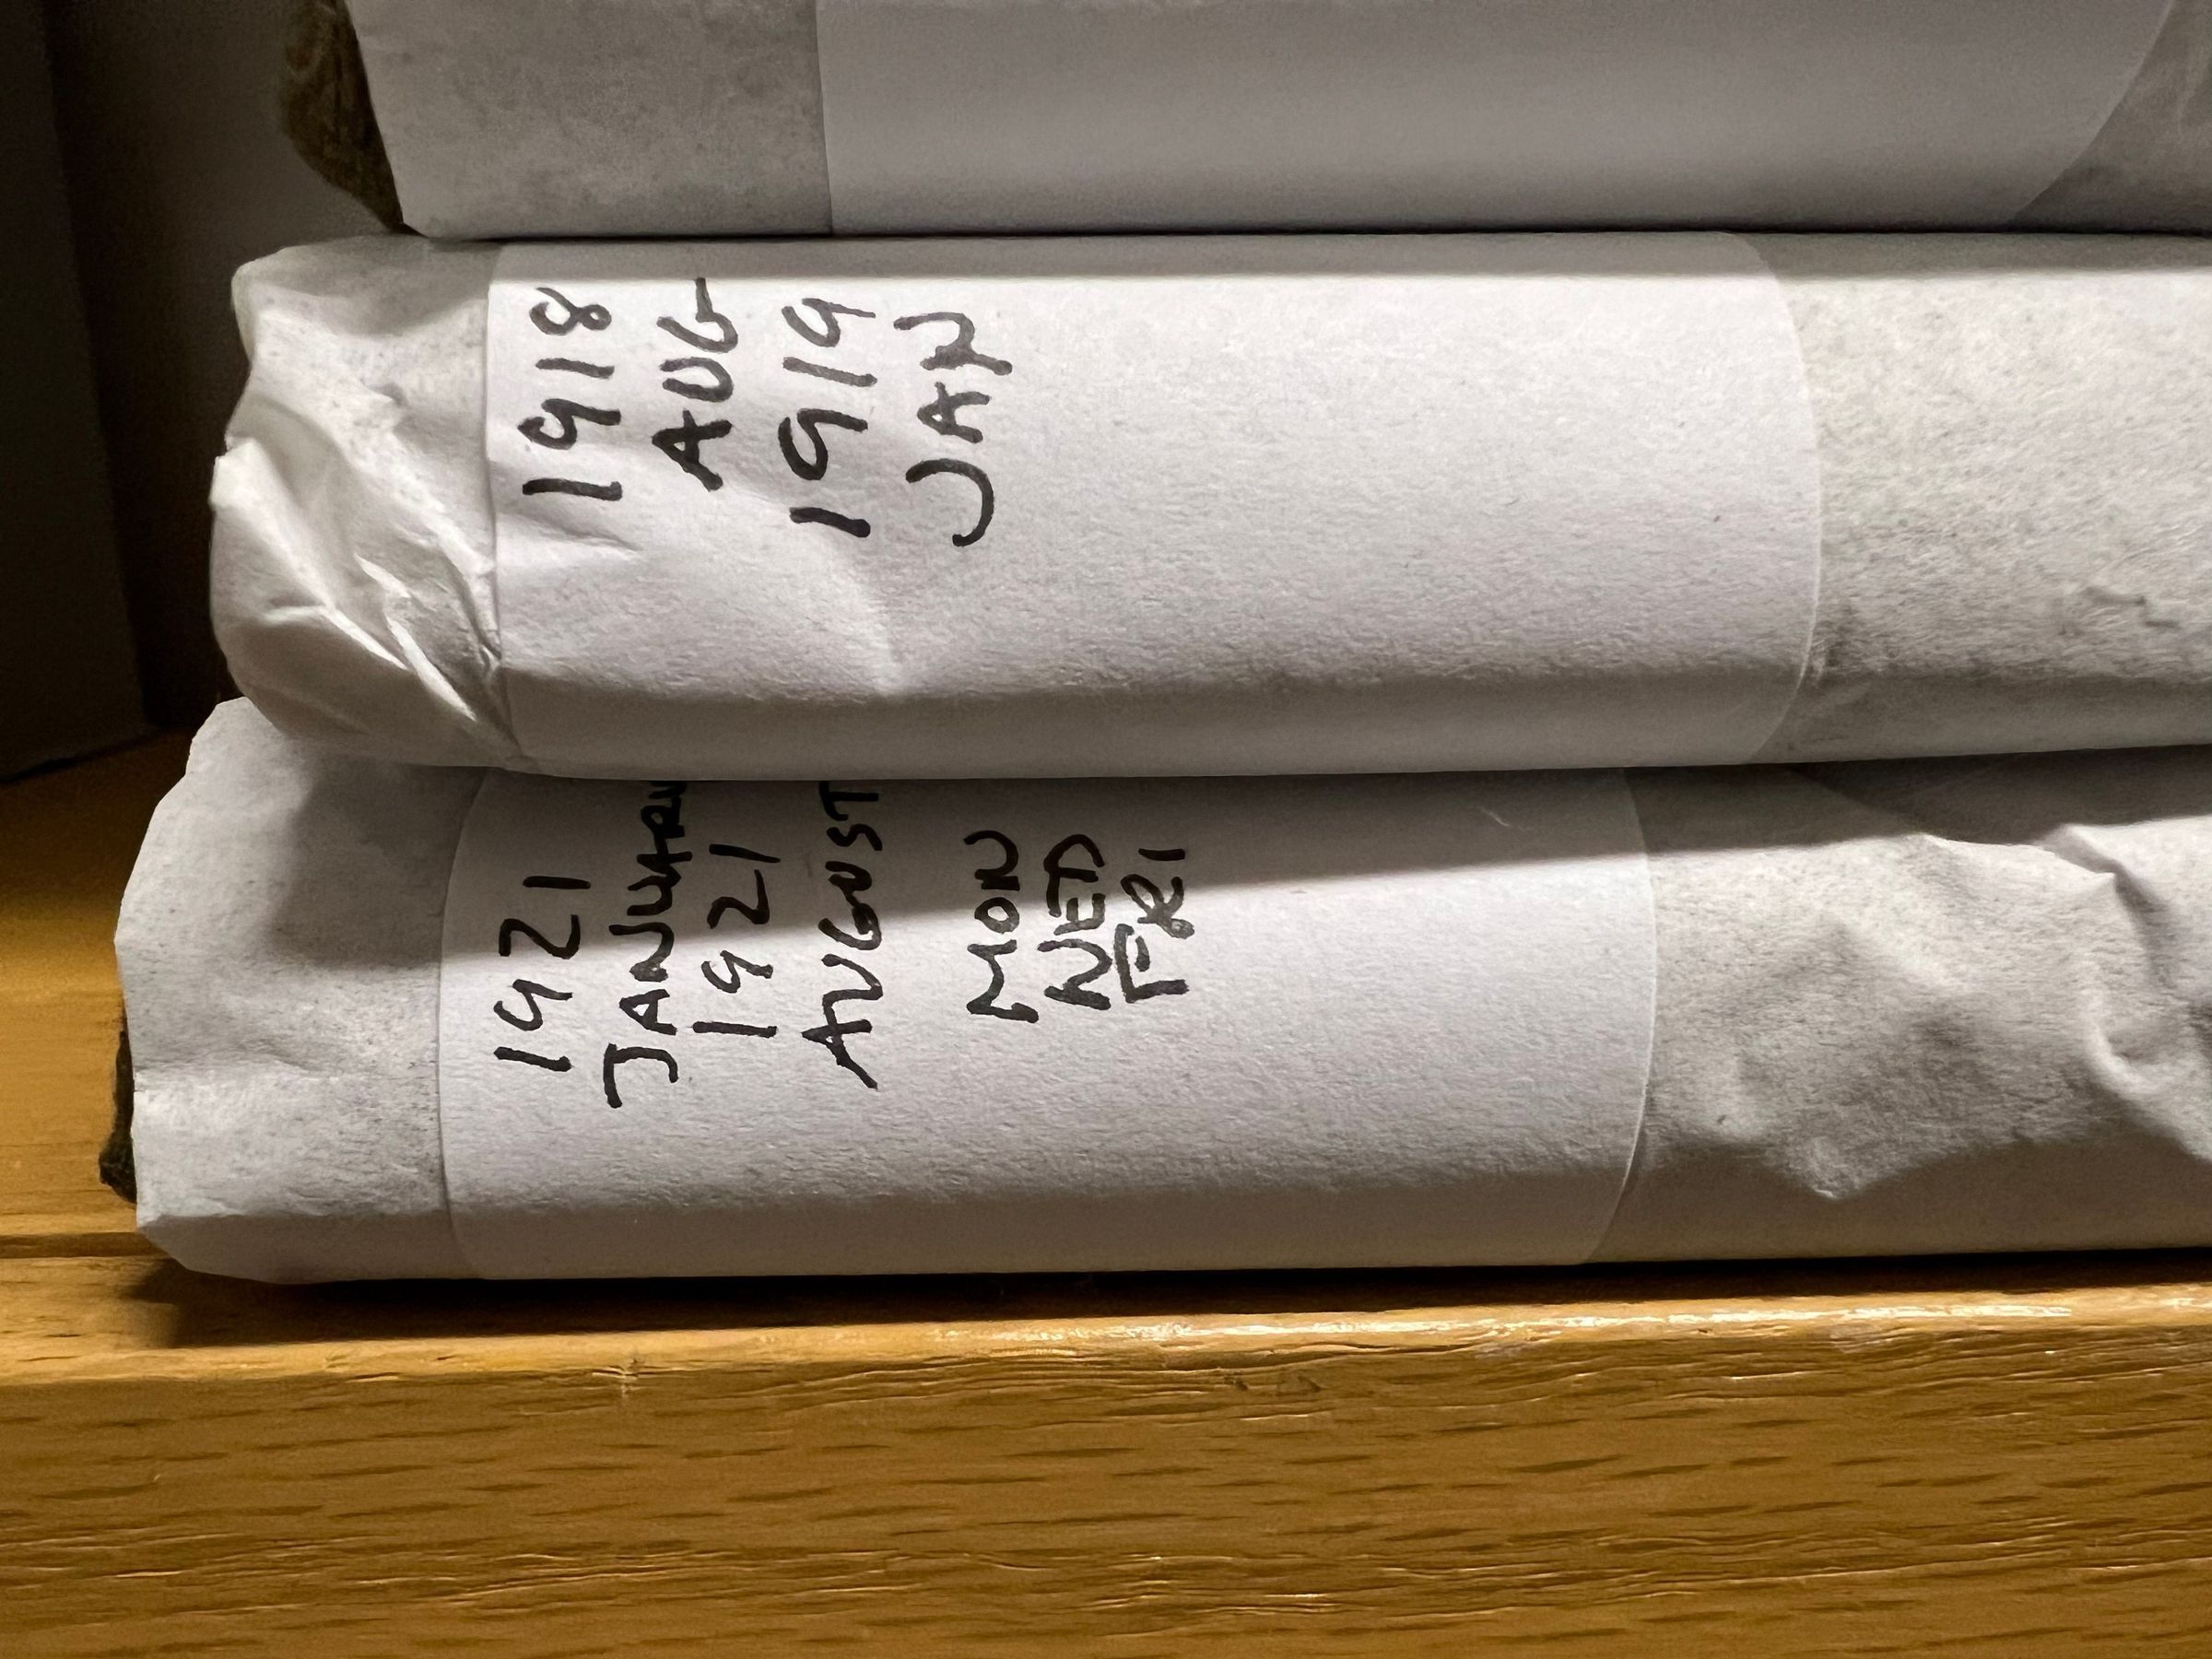 1918
AUG
1919
JAN
1921
JANUARY
1921
AUGUST
MON
WED
FRI